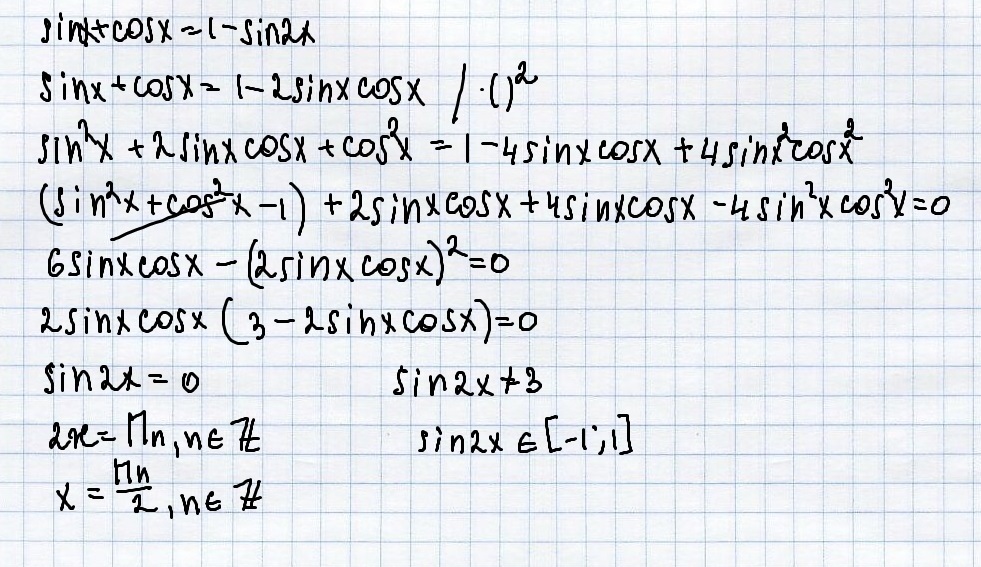 sinx+cosx=1-sin2x
sinx+cosx=1-2sinxcosx /·()²
sin²x+2sinxcosx+cos²x=1-4sinxcosx+4sinx²cosx²
(sin²x+cos²x-1)+2sinxcosx+4sinxcosx-4sin²xcos²x=0
6sinxcosx-(2sinxcosx)²=0
2sinxcosx(3-2sinxcosx)=0
sin2x=0 sin2x≠3
2x=Πn,n∈ℤ sin2x∈[-1;1]
x=Πn/2,n∈ℤ